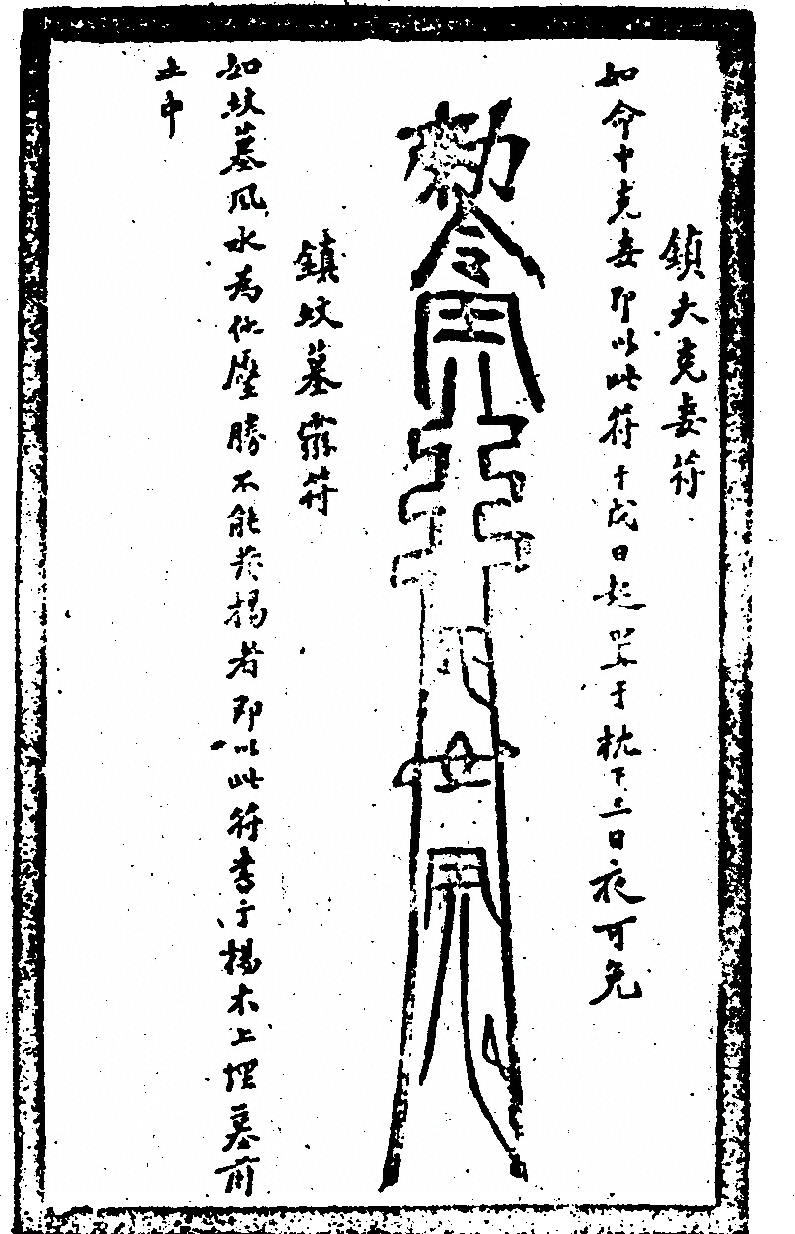 鎮夫克妻符
如命中克妻即以此符于戊日起置于枕下三日夜可免
勅令
鎮坟墓符
如坟墓風水為仇壓勝不能發揚者即以此符書于楊木上埋墓前
土中